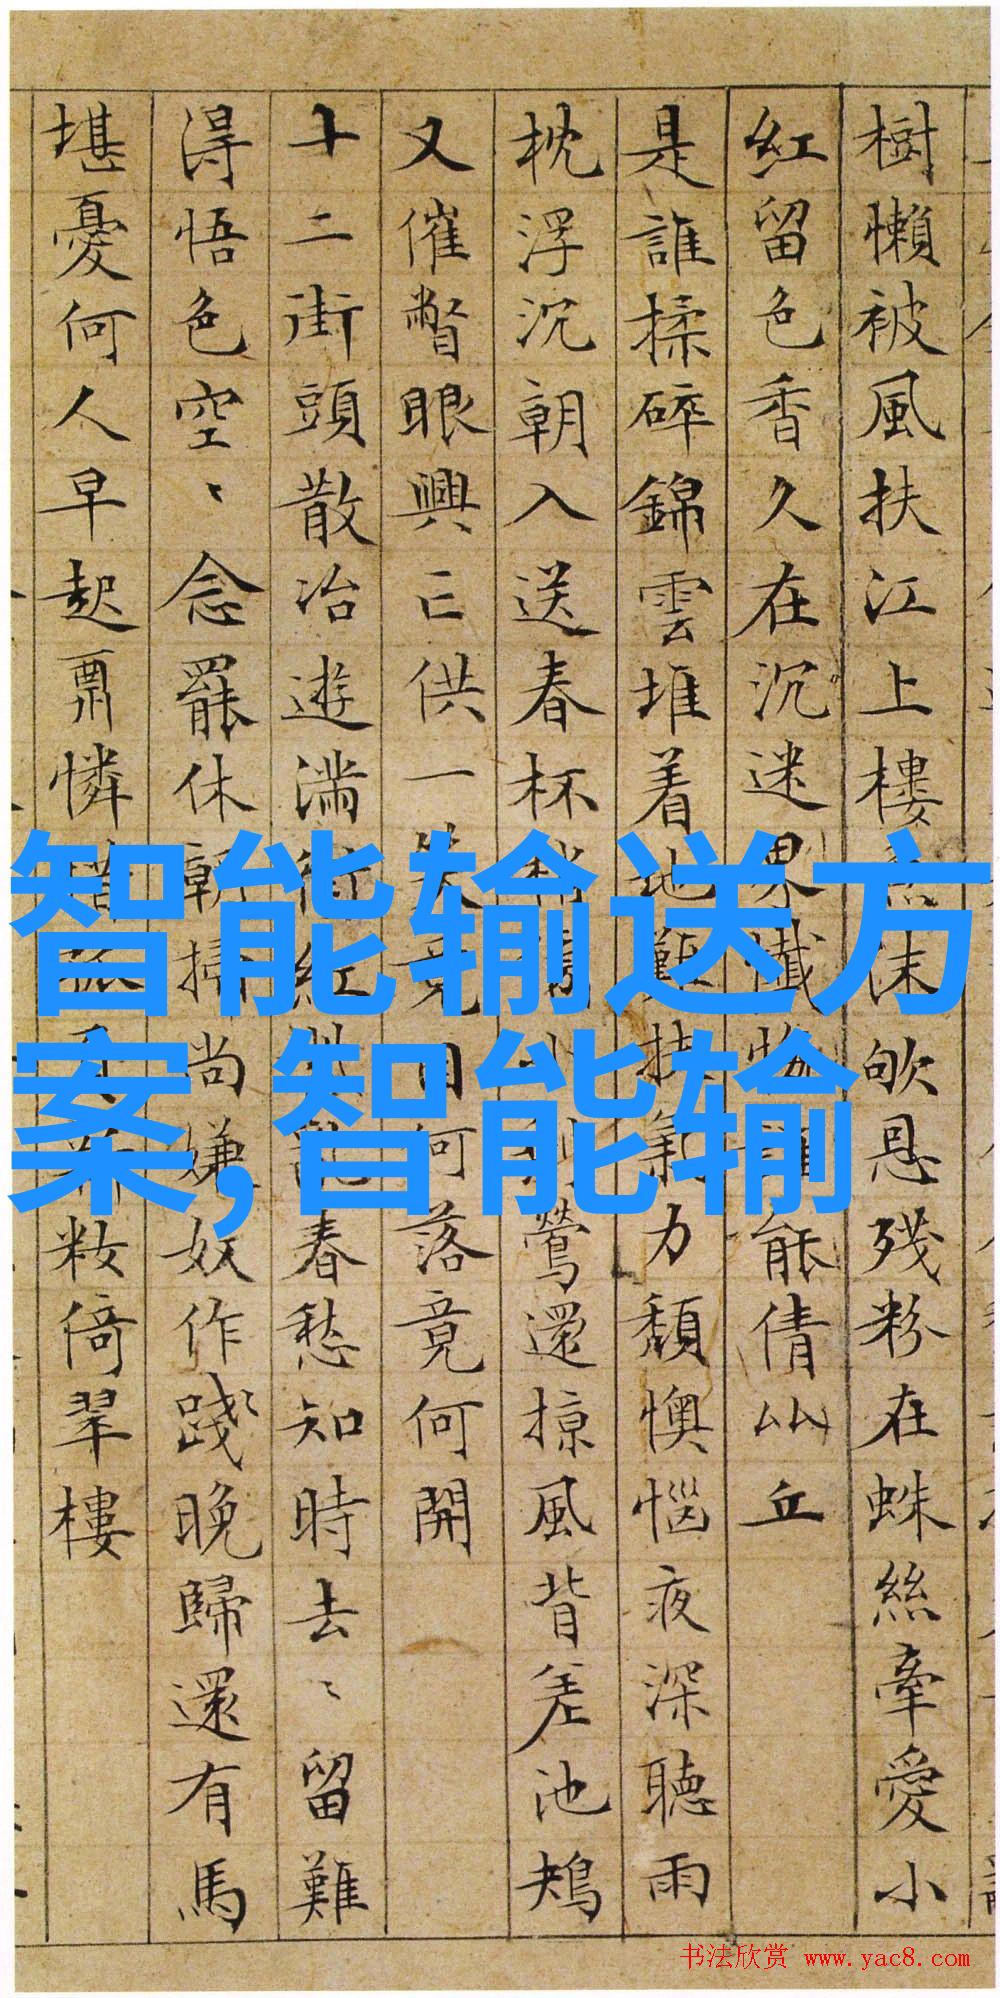 樹懶被風扶江上樓沫欨恩殘粉在蛛絲牽愛小
紅留色香久在沉迷界懺能倩山丘
是誰揉碎錦雲堆着地難扶氣力頹懊惱夜深聽雨
枕浮沉朝入送春杯鶯還掠風背差池鳺
又催瞥眼興亡供一笑竟何落竟何開
十二街頭散冶遊滿街紅春愁知時去〻留難
得悟色空〻念罷休朝掃尚嫌奴作踐〻晚歸還有馬
堪憂何人早起憐惜粧倚翠樓
智能输送方
案,智能输
书法欣赏 www.yac8.com